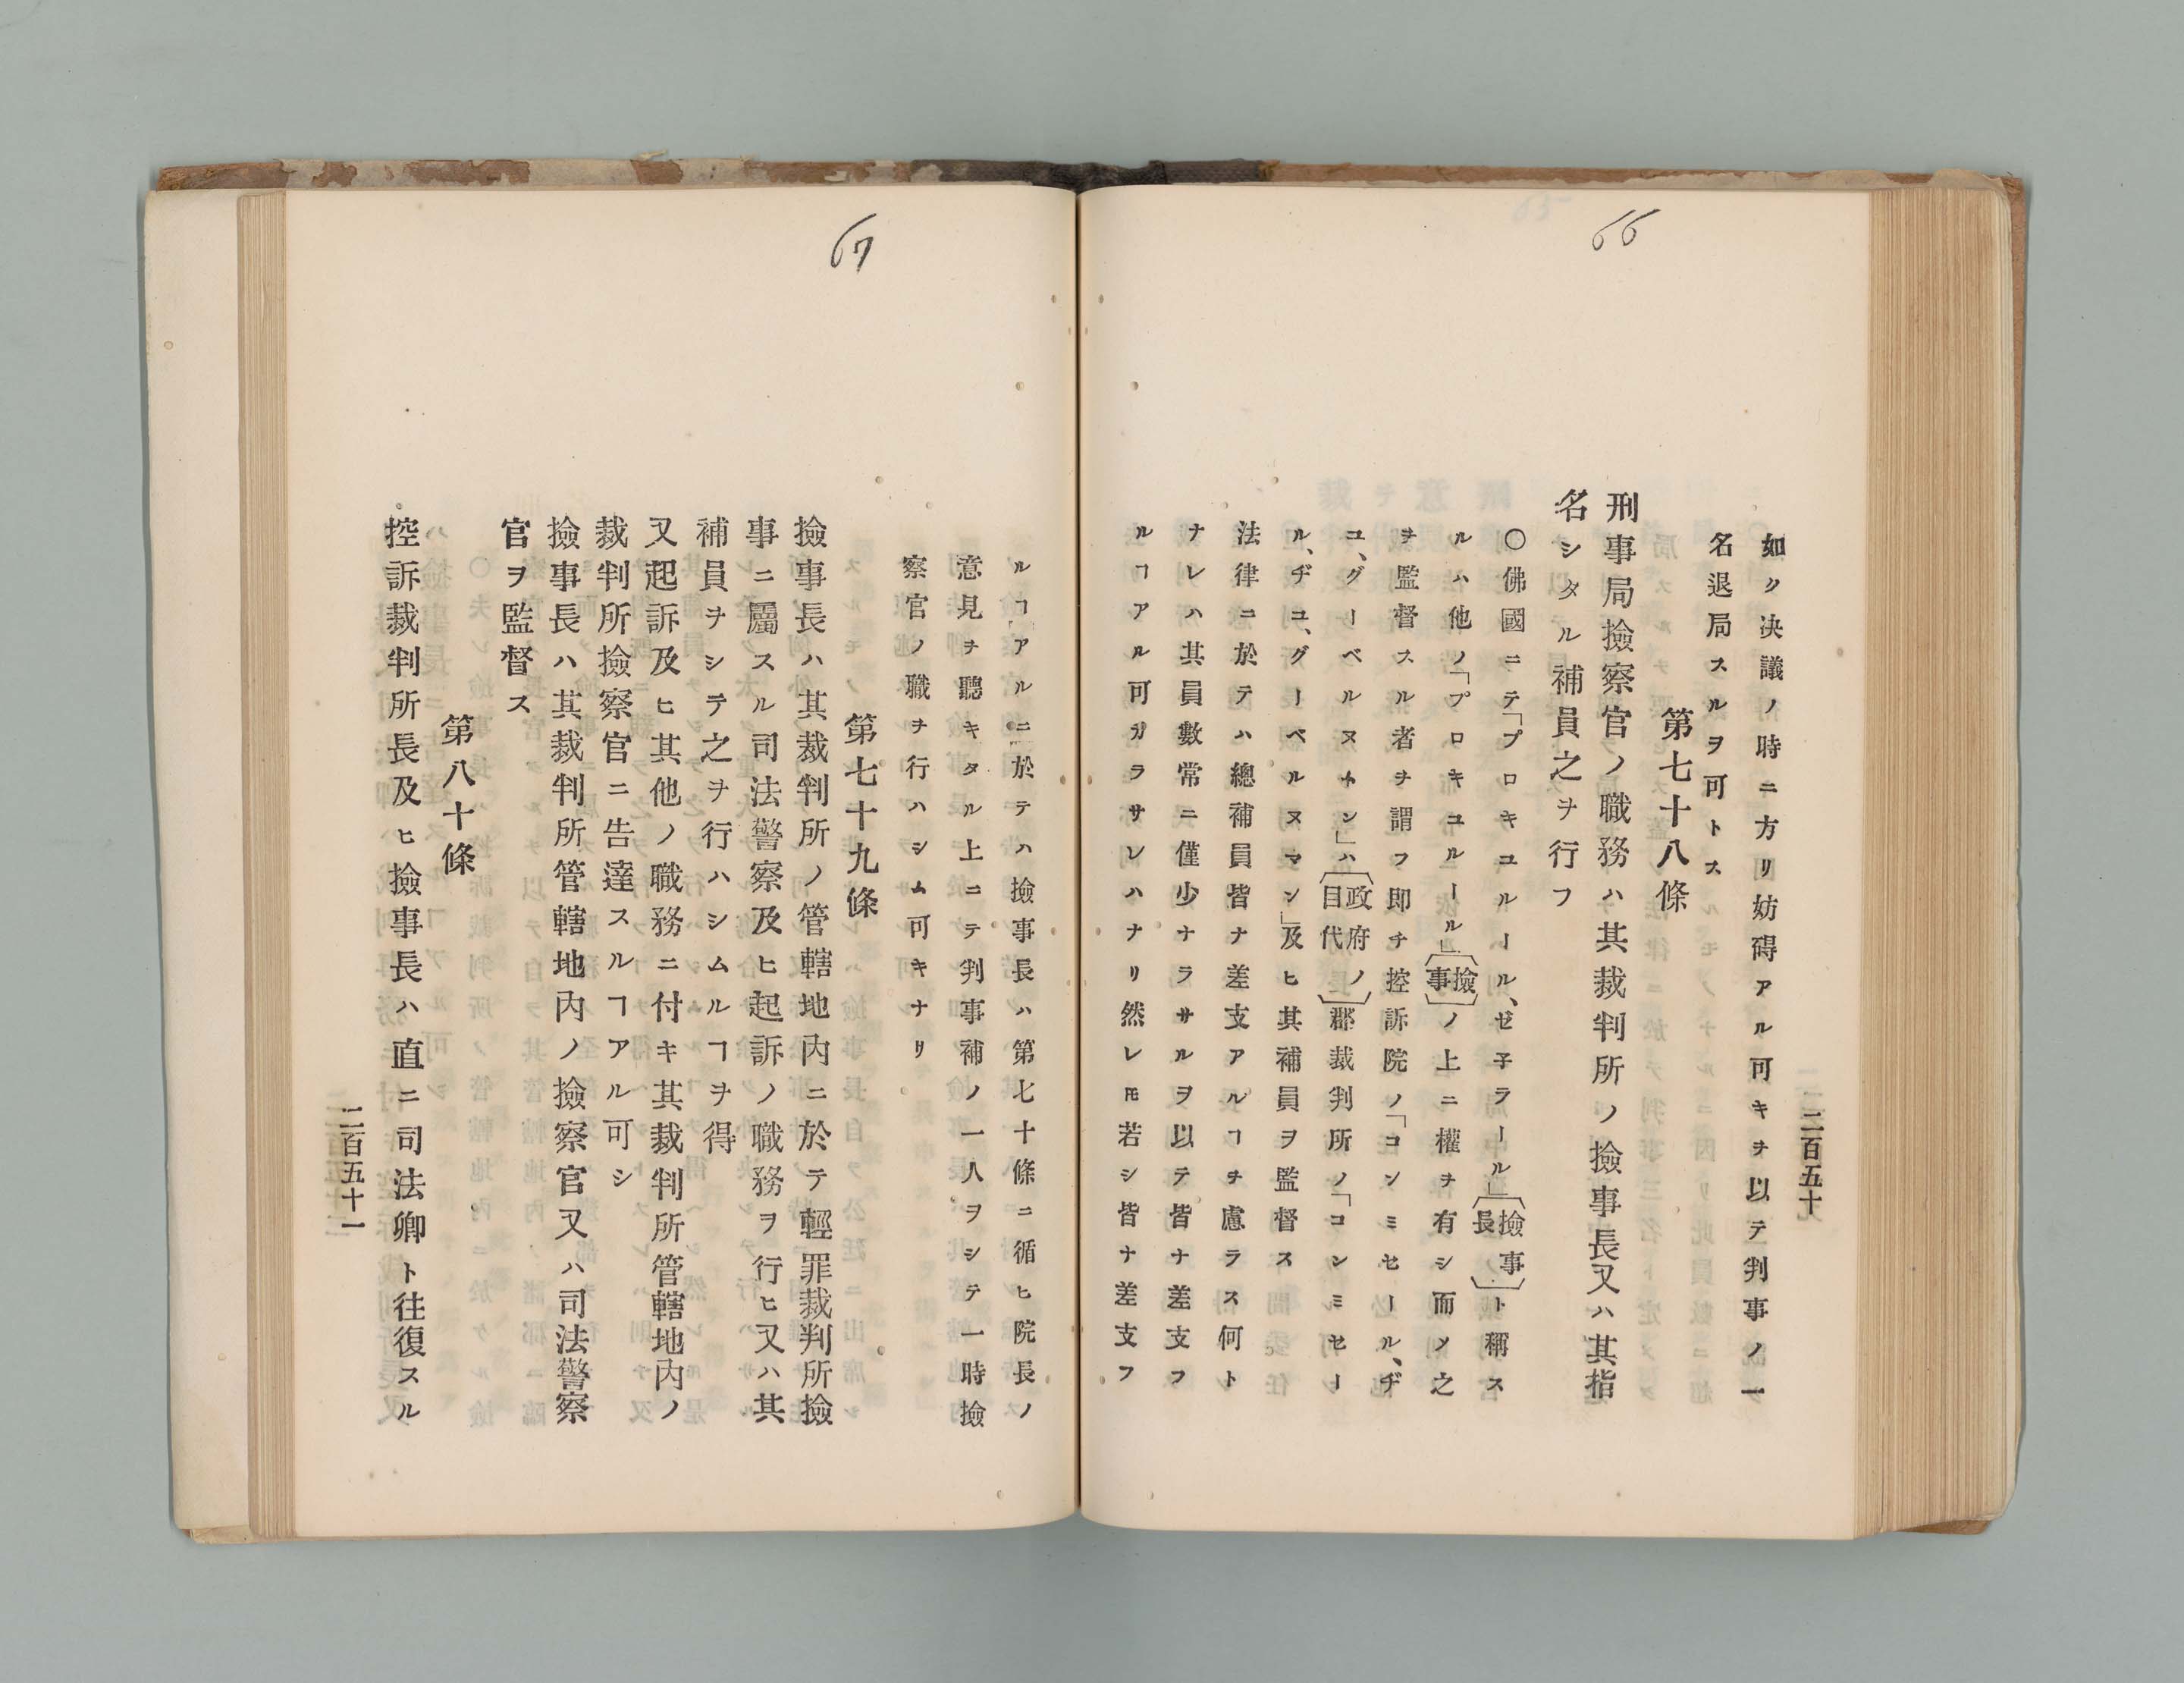 66
二百五十
如ク决議ノ時ニ方リ妨碍アル可キヲ以テ判事ノ一
名退局スルヲ可トス
第七十八條
刑事局撿察官ノ職務ハ其裁判所ノ撿事長又ハ其指
名シタル補員之ヲ行フ
〇佛國ニテ「プロキユルール、ゼ子ラール」〔撿事長〕ト稱ス
ルハ他ノ「プロキユルール」〔撿事〕ノ上ニ權ヲ有シ而メ之
ヲ監督スル者ヲ謂フ即チ控訴院ノ「コンミセール、ヂ
ユ、グーベルヌトン」ハ〔政府ノ目代〕郡裁判所ノ「コンミセー
ル、ヂユ、グーベルヌマン」及ヒ其補員ヲ監督ス
法律ニ於テハ總補員皆ナ差支アルヿヲ慮ラス何ト
ナレハ其員數常ニ僅少ナラサルヲ以テ皆ナ差支フ
ルヿアル可カラサレハナリ然レ𪜈若シ皆ナ差支フ
67
ルヿアルニ於テハ撿事長ハ第七十條ニ循ヒ院長ノ
意見ヲ聽キタル上ニテ判事補ノ一人ヲシテ一時撿
察官ノ職ヲ行ハシム可キナリ
第七十九條
撿事長ハ其裁判所ノ管轄地内ニ於テ輕罪裁判所撿
事ニ屬スル司法警察及ヒ起訴ノ職務ヲ行ヒ又ハ其
補員ヲシテ之ヲ行ハシムルヿヲ得
又起訴及ヒ其他ノ職務ニ付キ其裁判所管轄地内ノ
裁判所撿察官ニ告達スルヿアル可シ
撿事長ハ其裁判所管轄地内ノ撿察官又ハ司法警察
官ヲ監督ス
第八十條
控訴裁判所長及ヒ撿事長ハ直ニ司法卿ト往復スル
二百五十一